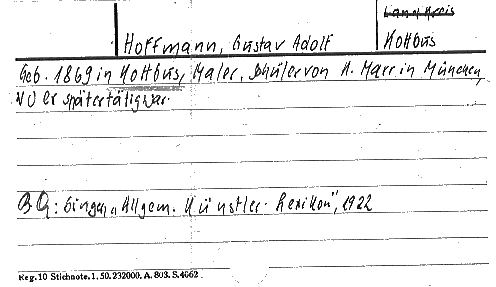 Landkreis
Hoffmann, Gustav Adolf
Kottbus
Geb. 1869 in Kottbus, Maler, Schüler von K. Marr in München,
wo er später tätig war.
BQ: Singer, „Allgem. Künstler-Lexikon", 1922
Reg. 10 Stichnote. 1. 50. 232000. A. 803. S. 4662.